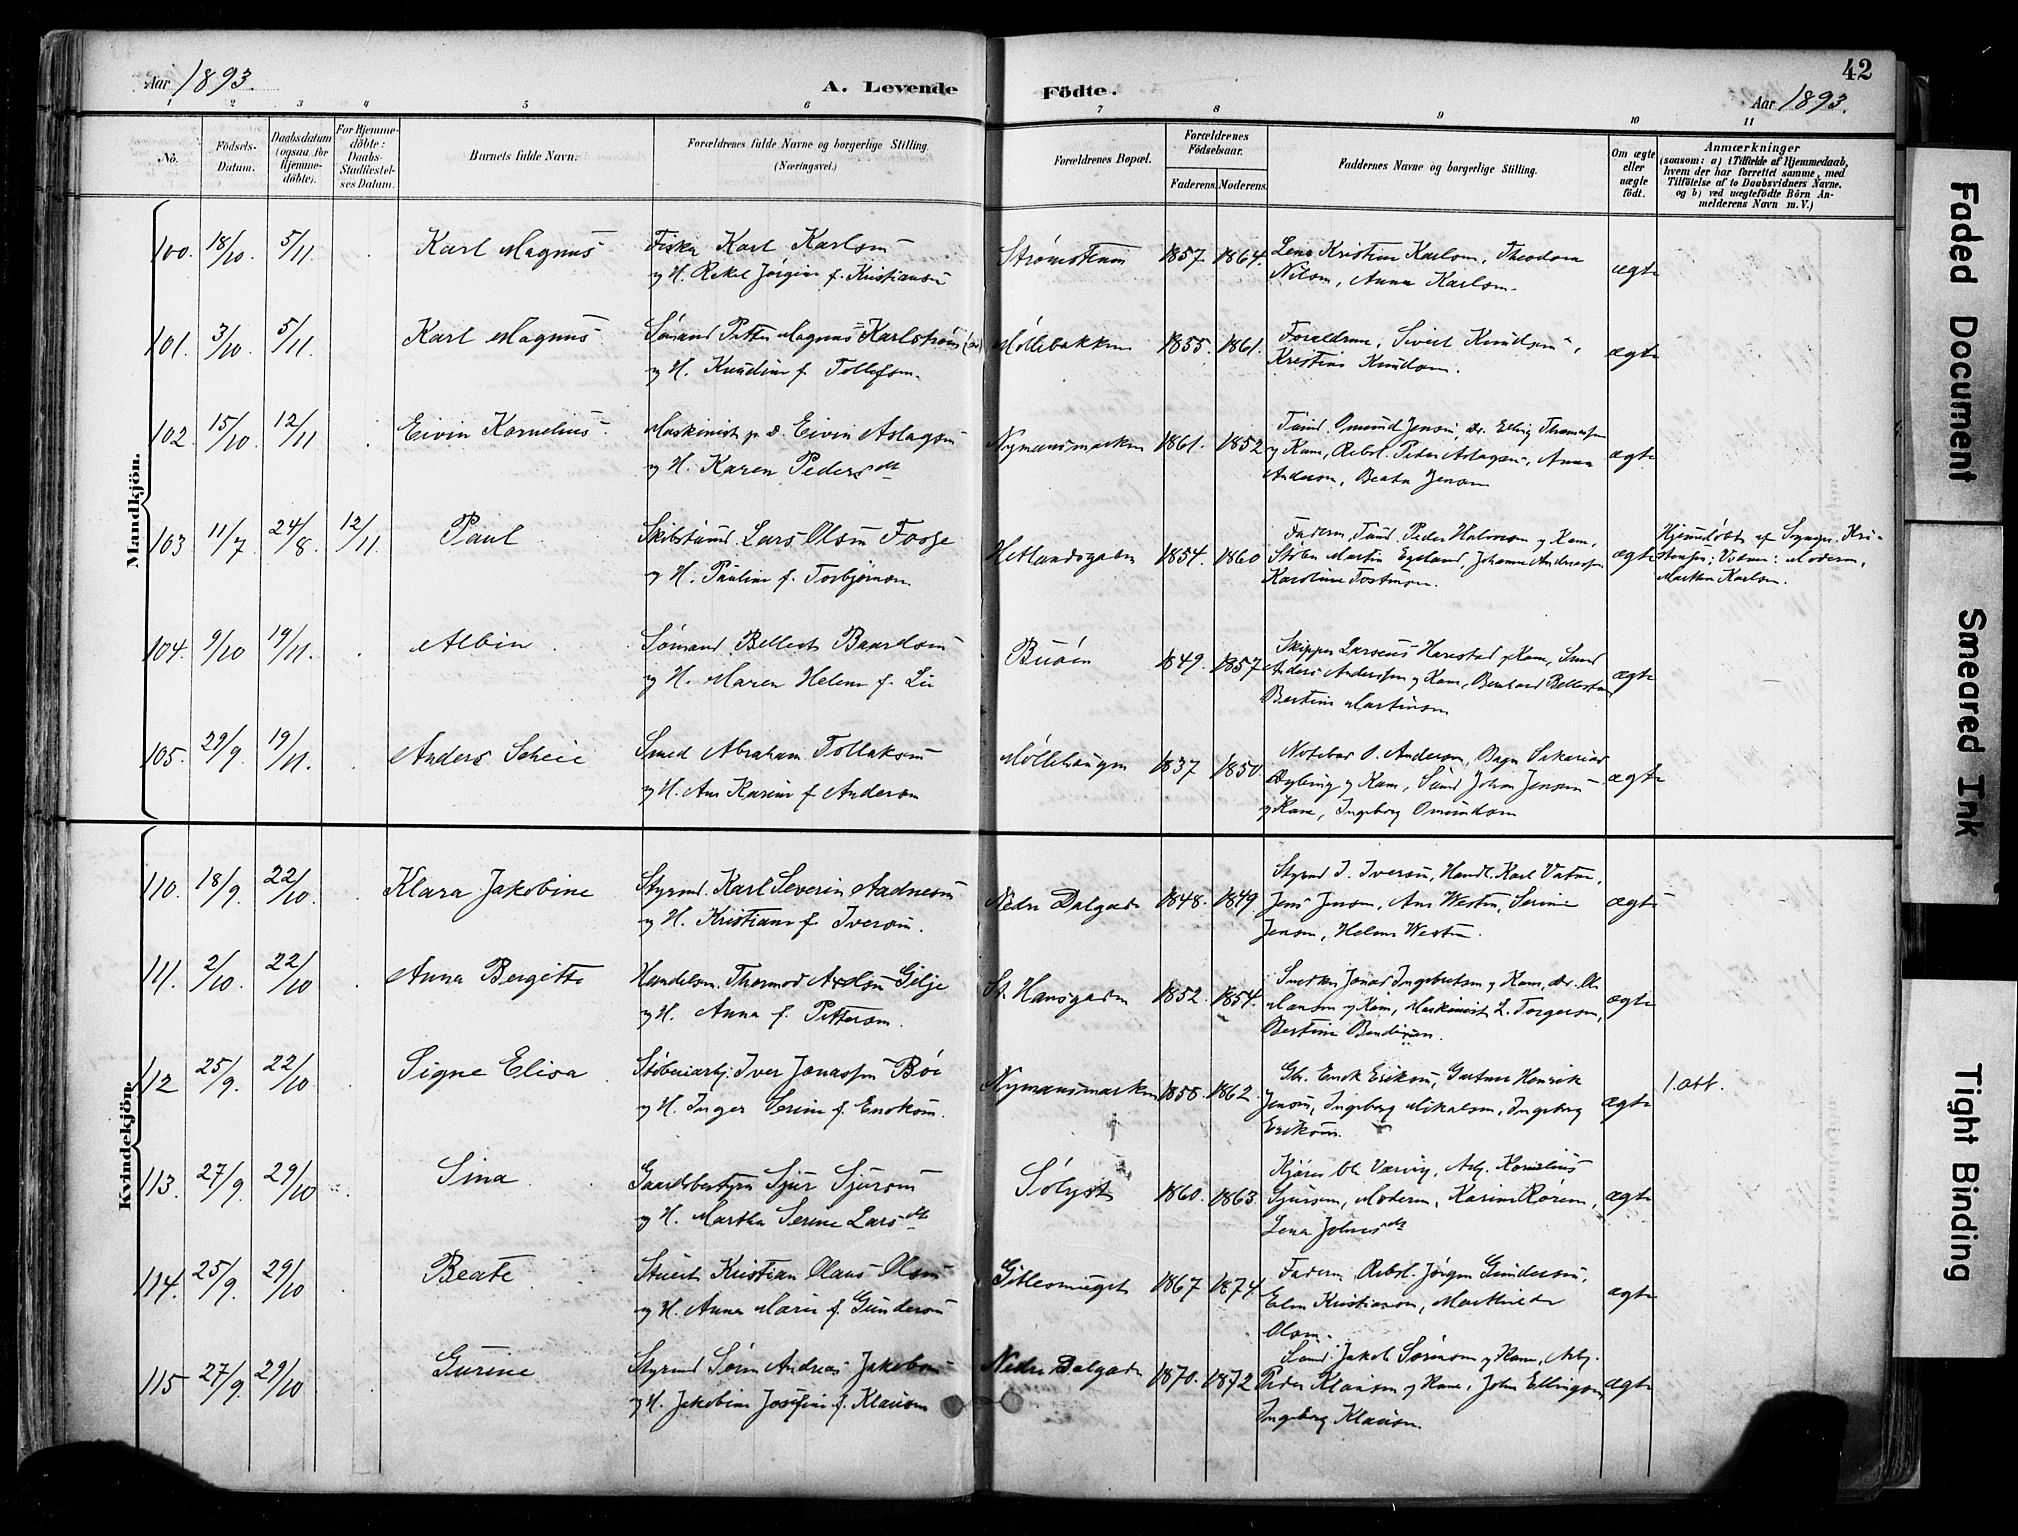 Aar 1893.
A. Levende
Födte.
42
Aar 1893.
1 2 3 4 5 6 7 8 9 10 11
No.
Födsels-
Datum.
Daabsdatum
(ogsaa for
Hjemme-
döbte).
For Hjemme-
döbte:
Daabs-
Stadfæstel-
ses Datum.
Barnets fulde Navn.
Forældrenes fulde Navne og borgerlige Stilling.
(Næringsvei.)
Forældrenes Bopæl.
Forældrenes
Födselsaar.
Faderens.
Moderens.
Faddernes Navne og borgerlige Stilling.
Om ægte
eller
uægte
födt.
Anmærkninger
(saasom: a) i Tilfælde af Hjemmedaab,
hvem der har forrettet samme, med
Tilföielse af to Daabsvidners Navne.
og b) ved uægtefödte Börn An-
melderens Navn m. V.)
Mandkjön.
100. 18/10. 5/11. Karl Magnus
Fisker Karl Karlsen
og H. Rakel Jørgine f. Kristiansen
Strømstenen 1857. 1864.
Lena Kristine Karlsen, Theodora
Nilsen, Anna Karlsen.
ægte
101. 3/10. 5/11. Karl Magnus
Sømand Petter Magnus Karlstrøm
og H. Knudine f. Tollefsen.
Møllebakken 1855. 1861.
Forældrene, Sivert Knudsen,
Kristine Knudsen.
ægte
102. 15/10. 12/11. Eivin Kornelius
Maskinist p. d. Eivin Aslagsen
og H. Karen Pedersdt
Nymansmarken 1861. 1852
Tømd. Omund Jensen, Elling Thomassen
og Kone, Rebsl. Peder Aslagsen, Anna
Andersen, Beata Jensen
ægte
103 11/7 24/8. 12/11. Paul
Skibstømd. Lars Olsen Fosse
og H. Pauline f. Torbjørnsen
Hetlandsgaden 1854. 1860
Faderen, Tømd. Peder Halvorsen og Kone,
Støber Martin Egeland, Johanne Andreassen
Karoline Tostensen.
ægte
Hjemmedøbt af Sognepr. Kri-
stensen; Vidner: Moderen,
Marthe Karlsen.
104. 9/10 19/11. Albin
Sømand Bellest Baardsen
og H. Maren Helene f. Lie
Buøen 1849. 1857
Skipper Larseus Harestad og Kone, Smed
Anders Anderssen og Kone, Bernhard Bellestsen
Bertine Martinsen
ægte
105. 29/9. 19/11. Anders Scheie
Smed Abraham Tollaksen
og H. Ane Karine f Andersen
Møllehaugen 1837 1850.
Notebas O. Andersen, Bager Sakarias
og Kone, Tømd Johan Jensen
og Kone, Ingeborg Omundsen
ægte
Kvindekjön.
110. 18/9. 22/10. Klara Jakobine
Styrmd. Karl Severin Aadnesen
og H. Kristiane f. Iversen.
Nedre Dalgade 1848. 1849.
Styrmd I. Iversen, Handl. Karl Vatne,
Jens Jensen, Ane Westen, Serine
Jensen, Helene Westen.
ægte
111. 2/10. 22/10 Anna Bergitte
Handelsm. Thormod Gilje
og H. Anna f. Pettersen.
St. Hansgaden 1852. 1854.
Snedker Jonas Ingebretsen og Kone,
og Kone, Maskinist L. Torgersen,
Bertine Bendiksen.
ægte
112 25/9. 22/10 Signe Elisa
Støberiarb. Iver Jonassen Bøe
og H. Inger Serine f. Eriksen.
Nymansmarken 1858. 1862.
Gbr. Enok Eriksen, Gustav Henrik
Jensen, Ingeborg Mikalsen, Ingeborg
Eriksen.
ægte
1. att.
113. 27/9. 29/10 Sina
Gaardsbestyrer Sjur Sjursen
og H. Martha Serine Larsdt
Sølyst 1860. 1863.
Kjører Ole Værvig, Arb. Kornelius
Sjursen, Moderen, Karine Røren,
Lena Johnsdt
ægte
114. 25/9. 29/10 Beate
Stuert Kristian Olaus Olsen
og H. Anna Marie f. Gundersen
Gitlesmuget 1867 1874.
Faderen, Rebsl. Jørgen Gundersen,
Elen Kristiansen, Marthilde
Olsen.
ægte
115 27/9. 29/10 Gurine
Styrmd Søren Andreas Jakobsen
og H. Jakobine Josefine f. Klausen
Nedre Dalgade 1870. 1872
Tømd. Jakob Sørensen og Kone, Arb.
Peder Klausen og Kone, John Ellingsen,
Ingeborg Klausen.
ægte
Faded Document
Smeared Ink
Tight Binding